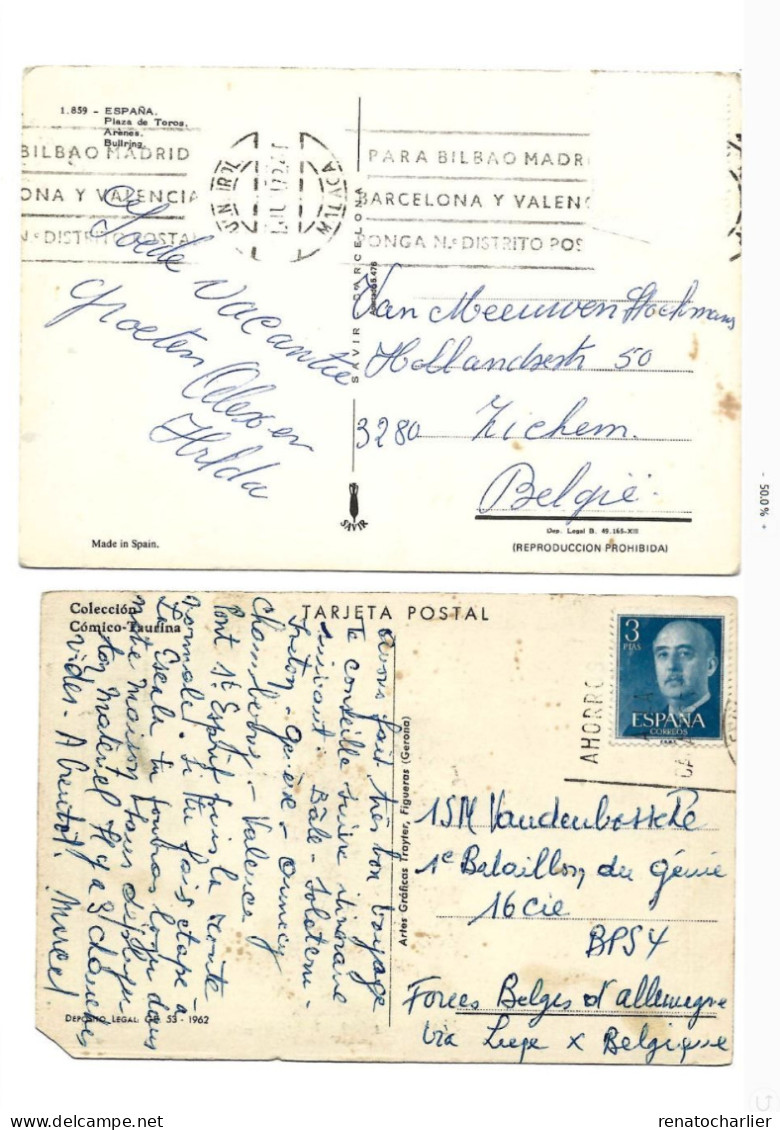 1.859 - ESPAÑA.
Plaza de Toros.
Arènes.
Bullring.
BILBAO MADRID
ONA Y VALENCIA
N.º DISTRITO POSTAL
PARA BILBAO MADRI
BARCELONA Y VALENC
PONGA N.º DISTRITO POS
Goede vacantie
groeten Alex en
Hilda
SAVIR BARCELONA
Van Meeuwen Stockmans
Hollandsestr 50
3280 Zichem.
België
SAVIR
Dep. Legal B. 49.165-XIII
(REPRODUCCION PROHIBIDA)
Made in Spain.
- 50.0 % +
Colección
Cómico-Taurina
TARJETA POSTAL
Avons fait très bon voyage
Te conseille suivre itinéraire
suivant. Bâle - Soleteu-
Annecy
Chambery - Valence
Pont St Esprit puis la route
normale. Si tu fais étape à
La Escala tu
ton matériel. Il y a 3 chambres
vides. A bientôt. Marcel
DEPOSITO LEGAL: 53 - 1962
Artes Gráficas Trayter, Figueras (Gerona)
3
PTAS
ESPAÑA
CORREOS
AHORRO
1SM Vandenbossche
1e Bataillon du génie
16 cie
BPS 4
Forces Belges d'allemagne
via Liege x Belgique
renatocharlier